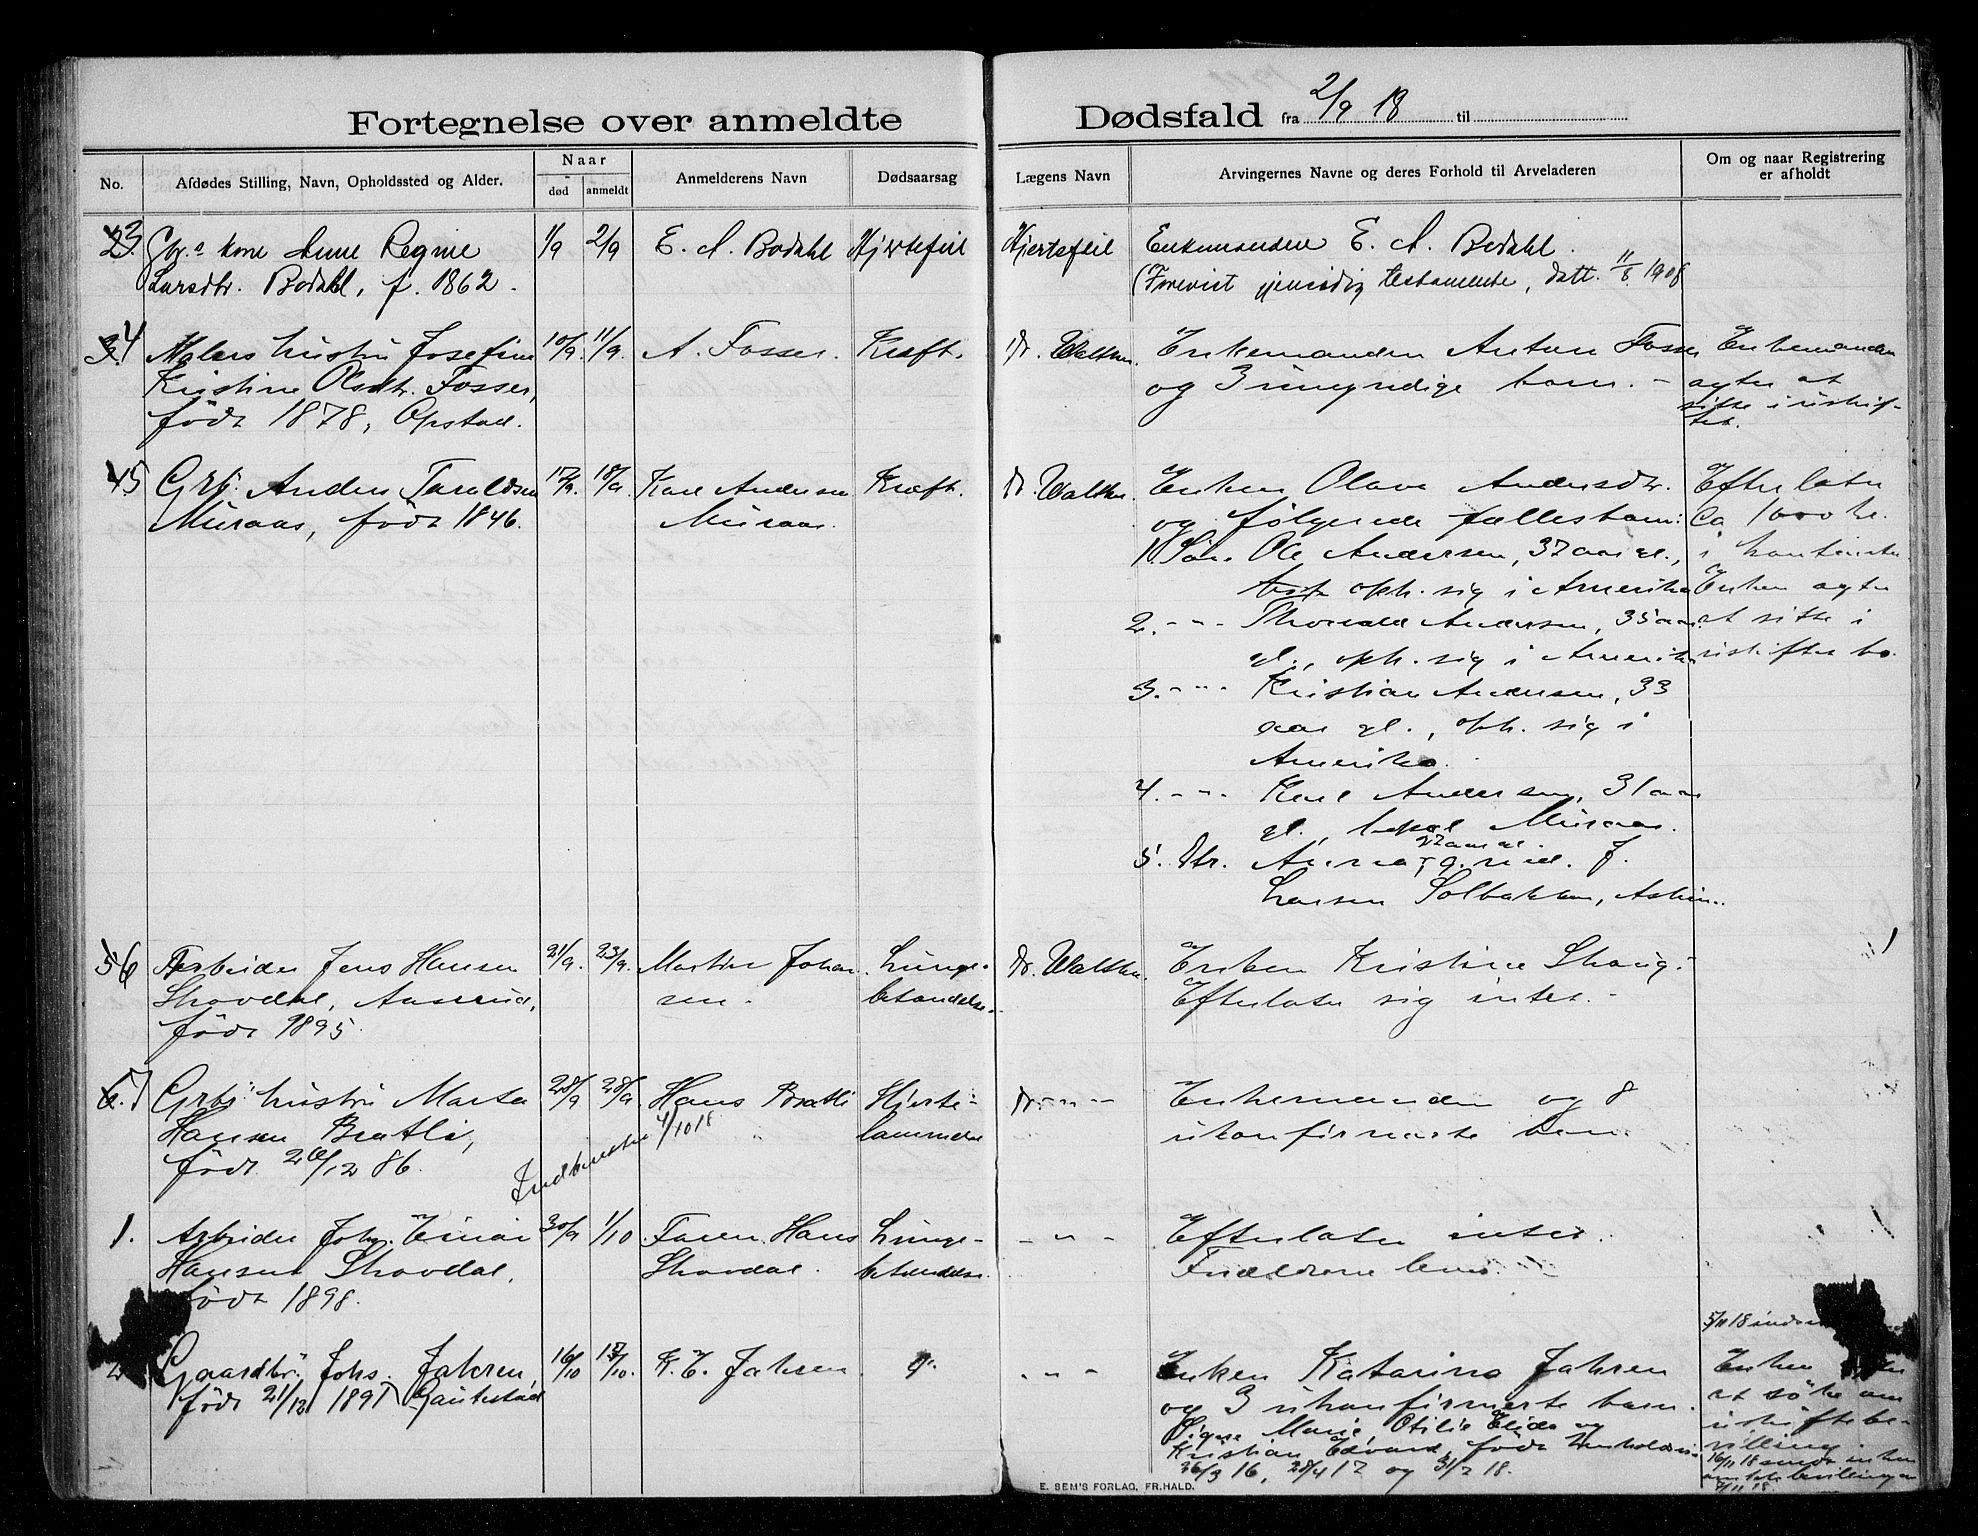 Fortegnelse over anmeldte
Dødsfald fra 2/9 18 til
No.
Afdødes Stilling, Navn, Opholdssted og Alder.
Naar
død
anmeldt
Anmelderens Navn
Dødsaarsag
Lægens Navn
Arvingernes Navne og deres Forhold til Arveladeren
Om og naar Registrering
er afholdt
3. Gbr.s kone Anne Regine
Larsdtr. Bodahl, f. 1862.
1/9
2/9
E. A. Bodahl
Hjertefeil
Hjertefeil
Enkemanden E. A. Bodahl.
(Forevist gjensidig testamente, datt. 11/8 1908
4 Malers hustru Josefine
Kristine Olsdtr. Fosser,
født 1878, Opstad.
10/9.
11/9.
A. Fosser.
Kræft.
Dr. Walther.
Enkemanden Anton Fosser
og 3 umyndige barn. -
Enkemanden
agter at
sitte i uskif-
tet.
5 Grbr. Anders Taraldsen
Muraas, født 1846.
17/9.
18/9
Karl Andersen
Muraas.
Kræft.
Dr. Walther.
Enken Olava Andersdtr.
og følgende fællesbarn:
1. Søn Ole Andersen, 37 aar gl.,
oph. sig i Amerika
2. - " - Thorvald Andersen, 35 aar
gl., oph. sig i Amerika
3. - " - Kristian Andersen, 33
aar gl., oph. sig i
Amerika.
4. - " - Karl Andersen, 31 aar
gl., Muraas.
27 aar gl.
5. Dtr. Anna, g. med J.
Larsen Solbakken, Askim.
Efterlater
ca 1000 kr.
i kontanter.
Enken agter
at sitte i
uskiftet bo.
6 Arbeider Jens Hansen
Skovdal, Aaserud,
født 1895.
21/9.
23/9.
Martin Johan-
sen.
Lunge-
betændelse.
Dr. Walther.
Enken Kristine Skaug.
Efterlater sig intet. -
7 Grbr. hustru Marta
Hansen Bratli,
født 20/12 86.
28/9
28/9
Hans Bratli
Indberettet 4/10 18
Hjerte-
lammelse
Dr - " -
Enkemanden og 8
ukonfirmerte barn.
1. Arbeider Johs. Einar
Hansen Skovdal,
født 1898.
30/9
1/10
Faren Hans
Skovdal.
Lunge-
betændelse.
- " -
Efterlater intet.
Forældrene lever.
2. Gaardbr. Johs. Jahren,
født 21/12 1891 Gautestad
16/10
17/10.
K. E. Jahren
- " -
Enken Katarina Jahren
og 3 ukonfirmerte barn.
Signe Marie, Otilie Elida og
Kristian Edvard, født henholdsvis
26/3 16, 28/4 17 og 31/7 18.
5/11 18
Enken
at søke om
uskiftebe-
villing.
16/11 18
E. SEM'S FORLAG, FR.HALD.